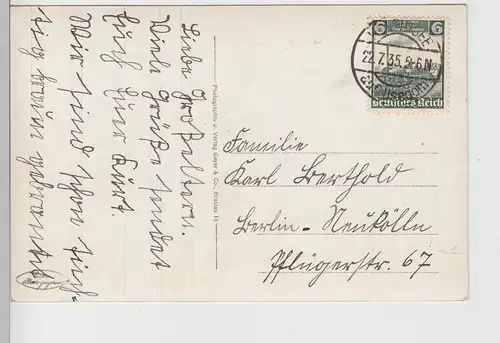 Liebe Großeltern.
Viele Grüße sendet
Euch Euer Kurt.
Wir sind schon tüch-
tig braun gebrannt
Photographie u. Verlag Geyer & Co., Breslau
6 6
22.7.35.5-6N
Deutsches Reich
Familie
Karl Berthold
Berlin-Neukölln
Pflügerstr. 67